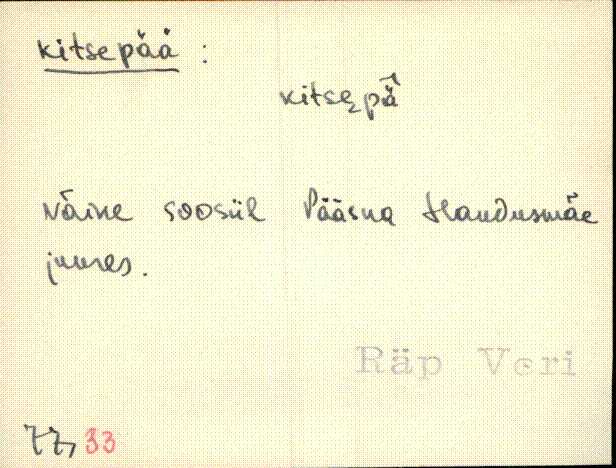 kitsepää :
kitsepä̀
Väike soosiil Pääsna Haudusmäe
juures.
Räp Veri
77, 33